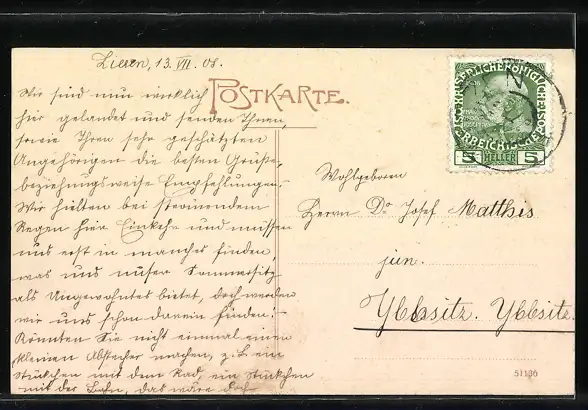 Liezen, 13. VII. 08.
POSTKARTE.
Wir sind nun wirklich
hier gelandet und senden Ihnen,
sowie Ihren sehr geschätzten
Angehörigen die besten Grüße,
beziehungsweise Empfehlungen.
Wir hielten bei strömendem
Regen hier Einkehr und müssen
uns erst in manches finden,
was uns unser Sommersitz
als Ungewohntes bietet, doch werden
wir uns schon darein finden!
Könnten Sie nicht einmal einen
kleinen Abstecher machen, z.B. ein
Stückchen mit dem Rad, ein Stückchen
mit der Bahn, das wäre doch
5 HELLER 5
Wohlgeboren
Herrn Dr. Josef Matthis
jun.
Ybbsitz. Ybbsitz
51130